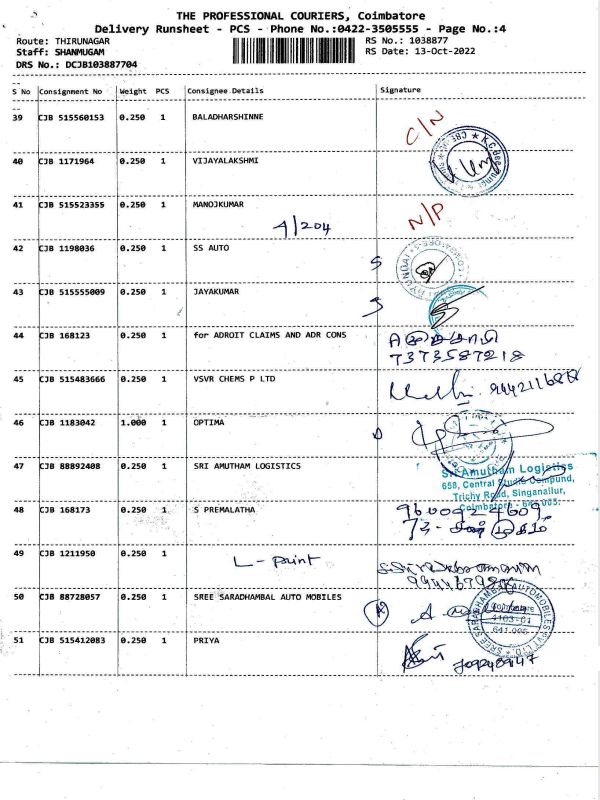 THE PROFESSIONAL COURIERS, Coimbatore
Delivery Runsheet - PCS - Phone No.:0422-3505555 - Page No.:4
Route: THIRUNAGAR RS No.: 1038877
Staff: SHANMUGAM RS Date: 13-Oct-2022
DRS No.: DCJB103887704
S No Consignment No Weight PCS Consignee Details Signature
39 CJB 515560153 0.250 1 BALADHARSHINNE C/N
40 CJB 1171964 0.250 1 VIJAYALAKSHMI
41 CJB 515523355 0.250 1 MANOJKUMAR N/P
A/204
42 CJB 1198036 0.250 1 SS AUTO
43 CJB 515555009 0.250 1 JAYAKUMAR
44 CJB 168123 0.250 1 for ADROIT CLAIMS AND ADR CONS
7373587218
45 CJB 515483666 0.250 1 VSVR CHEMS P LTD
46 CJB 1183042 1.000 1 OPTIMA
47 CJB 88892408 0.250 1 SRI AMUTHAM LOGISTICS
Sri Amutham Logistics
658, Central Studio Compund,
Trichy Road, Singanallur,
Coimbatore - 641 005.
48 CJB 168173 0.250 1 S PREMALATHA
49 CJB 1211950 0.250 1 L - point
50 CJB 88728057 0.250 1 SREE SARADHAMBAL AUTO MOBILES
SREE SARADHAMBAL AUTOMOBILES PVT LTD
641 005
51 CJB 515412083 0.250 1 PRIYA